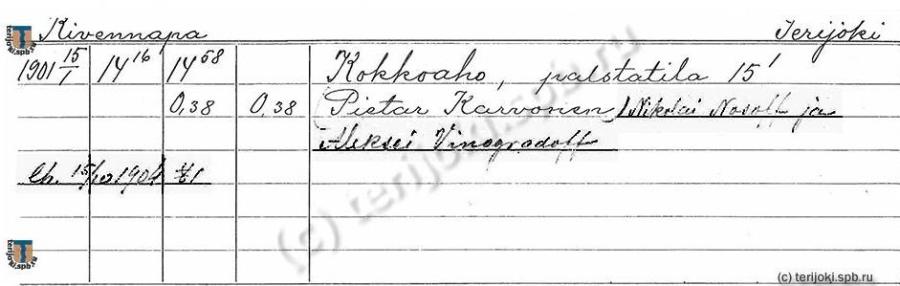 Kivennapa Terijoki
1901 15/1 14 16 14 68 Kokkoaho, palstatila 15¹
0,38 0,38 (Pietar Karvonen) Nikolai Nosoff ja
Aleksei Vinogradoff
15/10 1904 #1
(c) terijoki.spb.ru
terijoki.spb.ru
terijoki.spb.ru
(c) terijoki.spb.ru